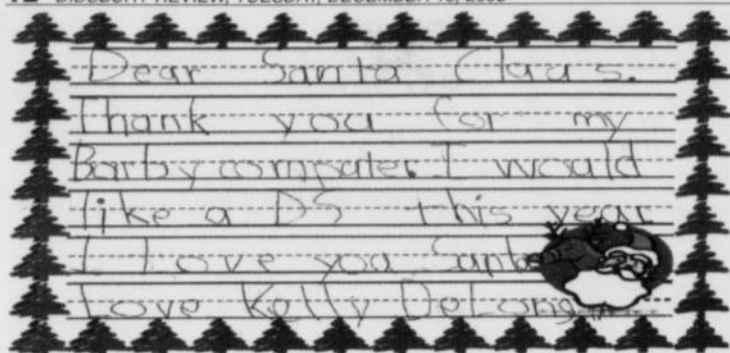 Dear Santa Claus.
Thank you for my
Barby computer. I would
like a DS this year
I Love you Santa
Love Kelly DeLong